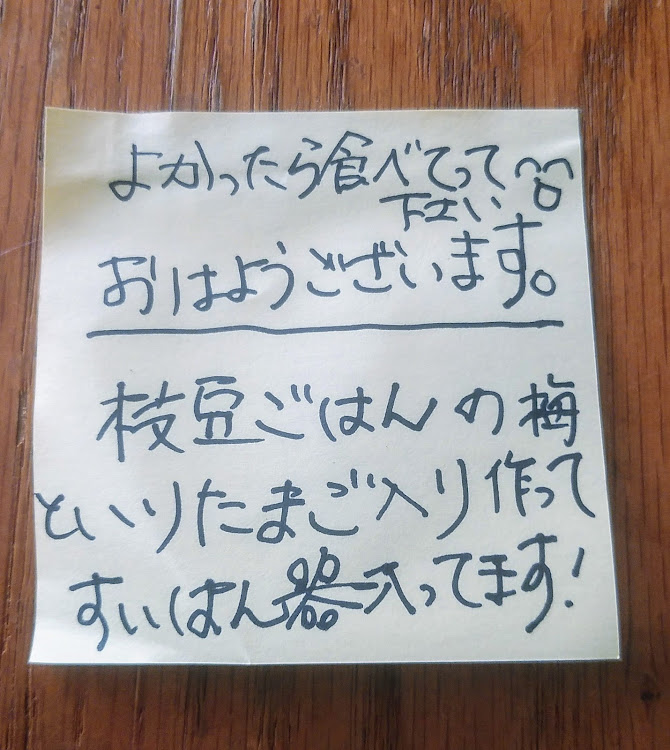 よかったら食べてって
下さい
おはようございます。
枝豆ごはんの梅
といりたまご入り作って
すいはん器入ってます!